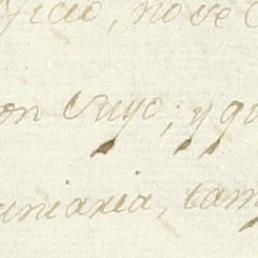 ficio, no se
on Suyo; y qu
uniaria, tam